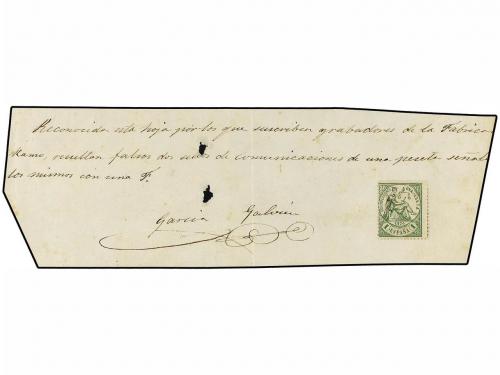 Reconocida esta hoja por los que suscriben grabadores de la Fabrica
Ramo, resultan falsos dos sellos de comunicaciones de una peseta señala
los mismos con una F.
Garcia Galván